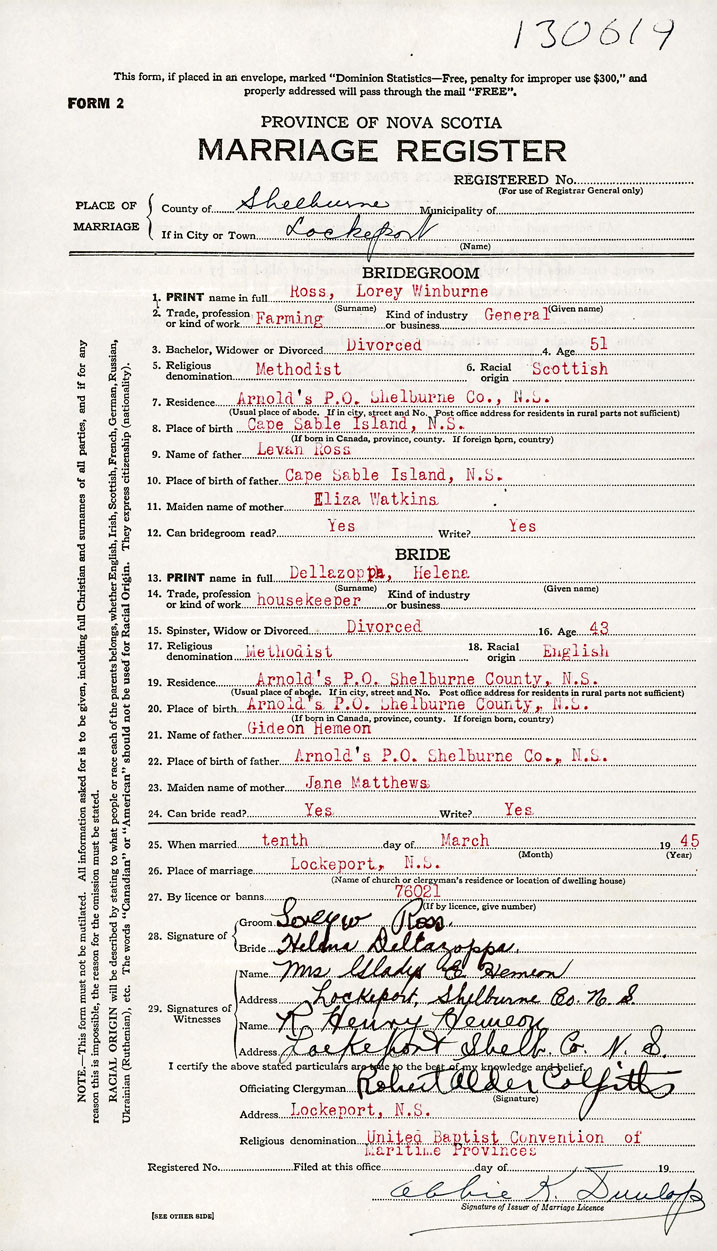 130619
This form, if placed in an envelope, marked “Dominion Statistics—Free, penalty for improper use $300,” and
properly addressed will pass through the mail “FREE”.
FORM 2
PROVINCE OF NOVA SCOTIA
MARRIAGE REGISTER
REGISTERED No.
(For use of Registrar General only)
PLACE OF MARRIAGE
County of Shelburne Municipality of
If in City or Town Lockeport
(Name)
BRIDEGROOM
1. PRINT name in full Ross, Lorey Winburne
(Surname) (Given name)
2. Trade, profession or kind of work Farming Kind of industry or business General
3. Bachelor, Widower or Divorced Divorced 4. Age 51
5. Religious denomination Methodist 6. Racial origin Scottish
7. Residence Arnold's P.O. Shelburne Co., N.S.
(Usual place of abode. If in city, street and No. Post office address for residents in rural parts not sufficient)
8. Place of birth Cape Sable Island, N.S.
(If born in Canada, province, county. If foreign born, country)
9. Name of father Levan Ross
10. Place of birth of father Cape Sable Island, N.S.
11. Maiden name of mother Eliza Watkins
12. Can bridegroom read? Yes Write? Yes
BRIDE
13. PRINT name in full Dellazoppa, Helena
(Surname) (Given name)
14. Trade, profession or kind of work housekeeper Kind of industry or business
15. Spinster, Widow or Divorced Divorced 16. Age 43
17. Religious denomination Methodist 18. Racial origin English
19. Residence Arnold's P.O. Shelburne County, N.S.
(Usual place of abode. If in city, street and No. Post office address for residents in rural parts not sufficient)
20. Place of birth Arnold's P.O. Shelburne County, N.S.
(If born in Canada, province, county. If foreign born, country)
21. Name of father Gideon Hemeon
22. Place of birth of father Arnold's P.O. Shelburne Co., N.S.
23. Maiden name of mother Jane Matthews
24. Can bride read? Yes Write? Yes
25. When married tenth day of March 19 45
(Month) (Year)
26. Place of marriage Lockeport, N.S.
(Name of church or clergyman's residence or location of dwelling house)
27. By licence or banns 76021
(If by licence, give number)
28. Signature of
Groom Lorey W Ross.
Bride Helena Dellazoppa.
29. Signatures of Witnesses
Name Mrs Gladys E Hemeon
Address Lockeport, Shelburne Co. N. S.
Name R Henry Hemeon
Address Lockeport Shelb. Co. N. S.
I certify the above stated particulars are true to the best of my knowledge and belief.
Officiating Clergyman Robert Alder
(Signature)
Address Lockeport, N.S.
Religious denomination United Baptist Convention of
Maritime Provinces
Registered No. Filed at this office day of 19
Abbie K. Dunlop
Signature of Issuer of Marriage Licence
[SEE OTHER SIDE]
NOTE.—This form must not be mutilated. All information asked for is to be given, including full Christian and surnames of all parties, and if for any
reason this is impossible, the reason for the omission must be stated.
RACIAL ORIGIN will be described by stating to what people or race each of the parents belongs, whether English, Irish, Scottish, French, German, Russian,
Ukrainian (Ruthenian), etc. The words “Canadian” or “American” should not be used for Racial Origin. They express citizenship (nationality).